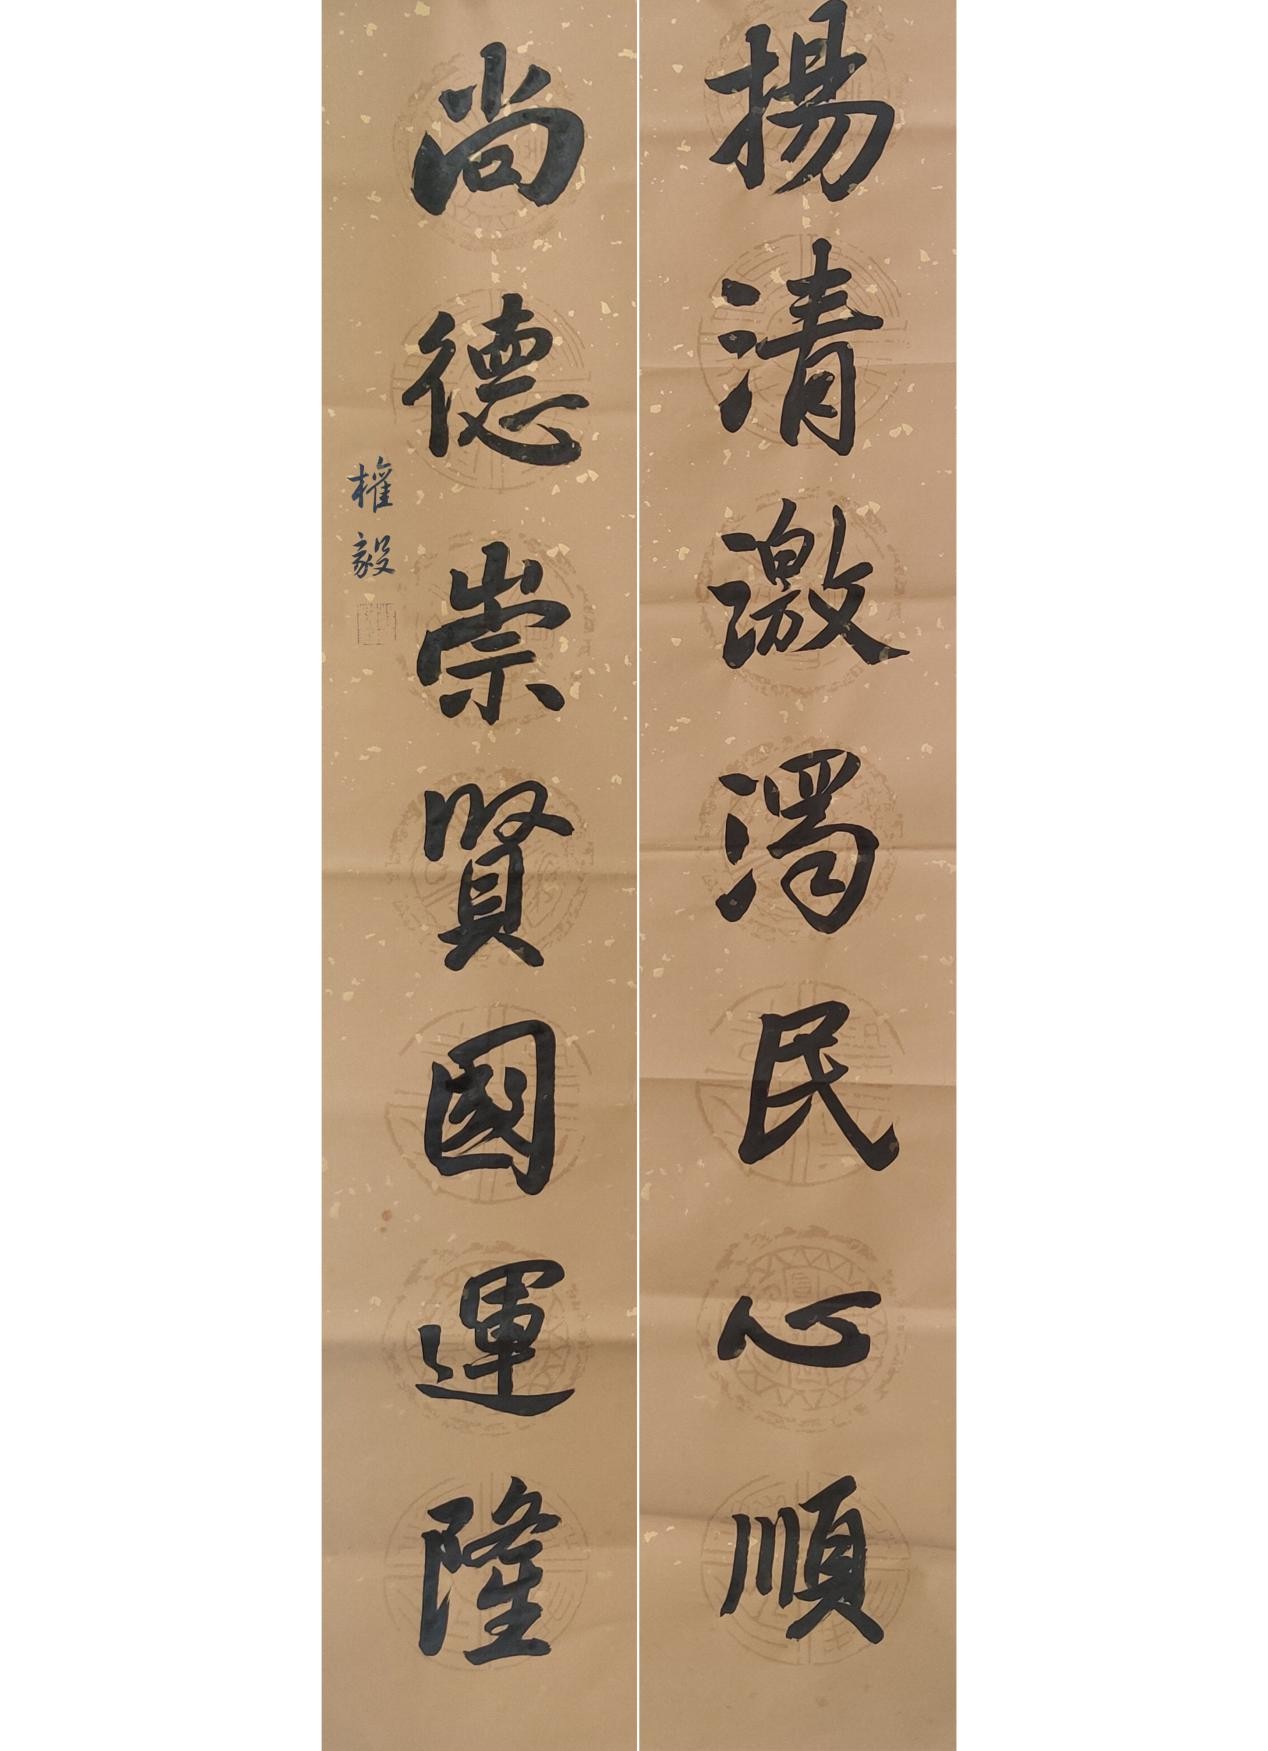 揚清激濁民心順
尚德崇賢國運隆
權毅